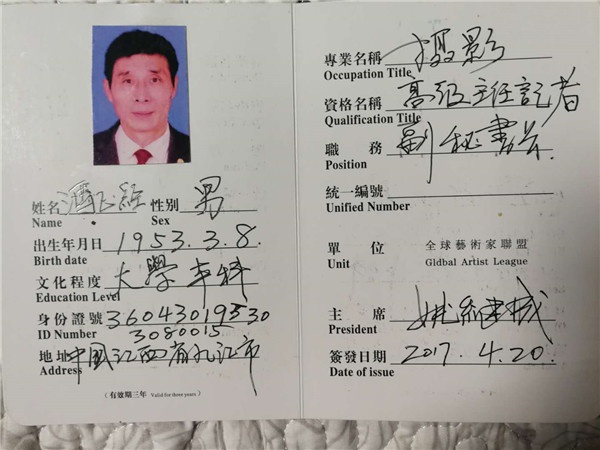 姓名 性别 男
Name Sex
出生年月日 1953.3.8.
Birth date
文化程度 大學本科
Education Level
身份證號 36043019530
ID Number 3080015
地址 中國江西省九江市
Address
（有效期三年 Valid for three years）
專業名稱 摄影
Occupation Title
資格名稱 高级主任記者
Qualification Title
職務 副秘書长
Position
統一編號
Unified Number
單位 全球藝術家聯盟
Unit Gldbal Artist League
主席
President
簽發日期 2017.4.20.
Date of issue